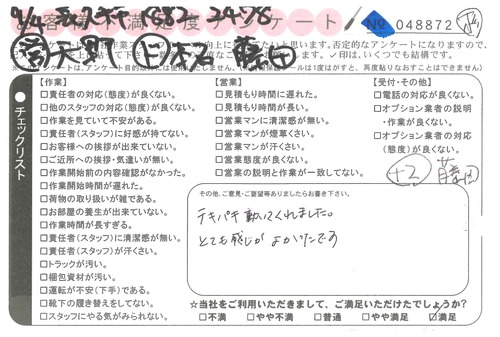 お客様不満足度アンケート
№ 048872
否定的なアンケートになりますので、
✓印は、いくつでも結構です。
チェックリスト
【作業】
□責任者の対応(態度)が良くない。
□他のスタッフの対応(態度)が良くない。
□作業を見ていて不安がある。
□責任者(スタッフ)に好感が持てない。
□お客様への挨拶が出来ていない。
□ご近所への挨拶・気遣いが無い。
□作業開始前の内容確認がなかった。
□作業開始時間が遅れた。
□荷物の取り扱いが雑である。
□お部屋の養生が出来ていない。
□作業時間が長すぎる。
□責任者(スタッフ)に清潔感が無い。
□責任者(スタッフ)が汗くさい。
□トラックが汚い。
□梱包資材が汚い。
□運転が不安(下手)である。
□靴下の履き替えをしてない。
□スタッフにやる気がみられない。
【営業】
□見積もり時間に遅れた。
□見積もり時間が長い。
□営業マンに清潔感が無い。
□営業マンが煙草くさい。
□営業マンが汗くさい。
□営業態度が良くない。
□営業の説明と作業が一致してない。
【受付・その他】
□電話の対応が良くない。
□オプション業者の説明
・作業が良くない。
□オプション業者の対応
(態度)が良くない。
+2 藤田
その他、ご意見・ご要望等ありましたらお書き下さい。
テキパキ動いてくれました。
とても感じが よかったです
☆当社をご利用いただきまして、ご満足いただけたでしょうか?
□不満 □やや不満 □普通 □やや満足 ☑満足